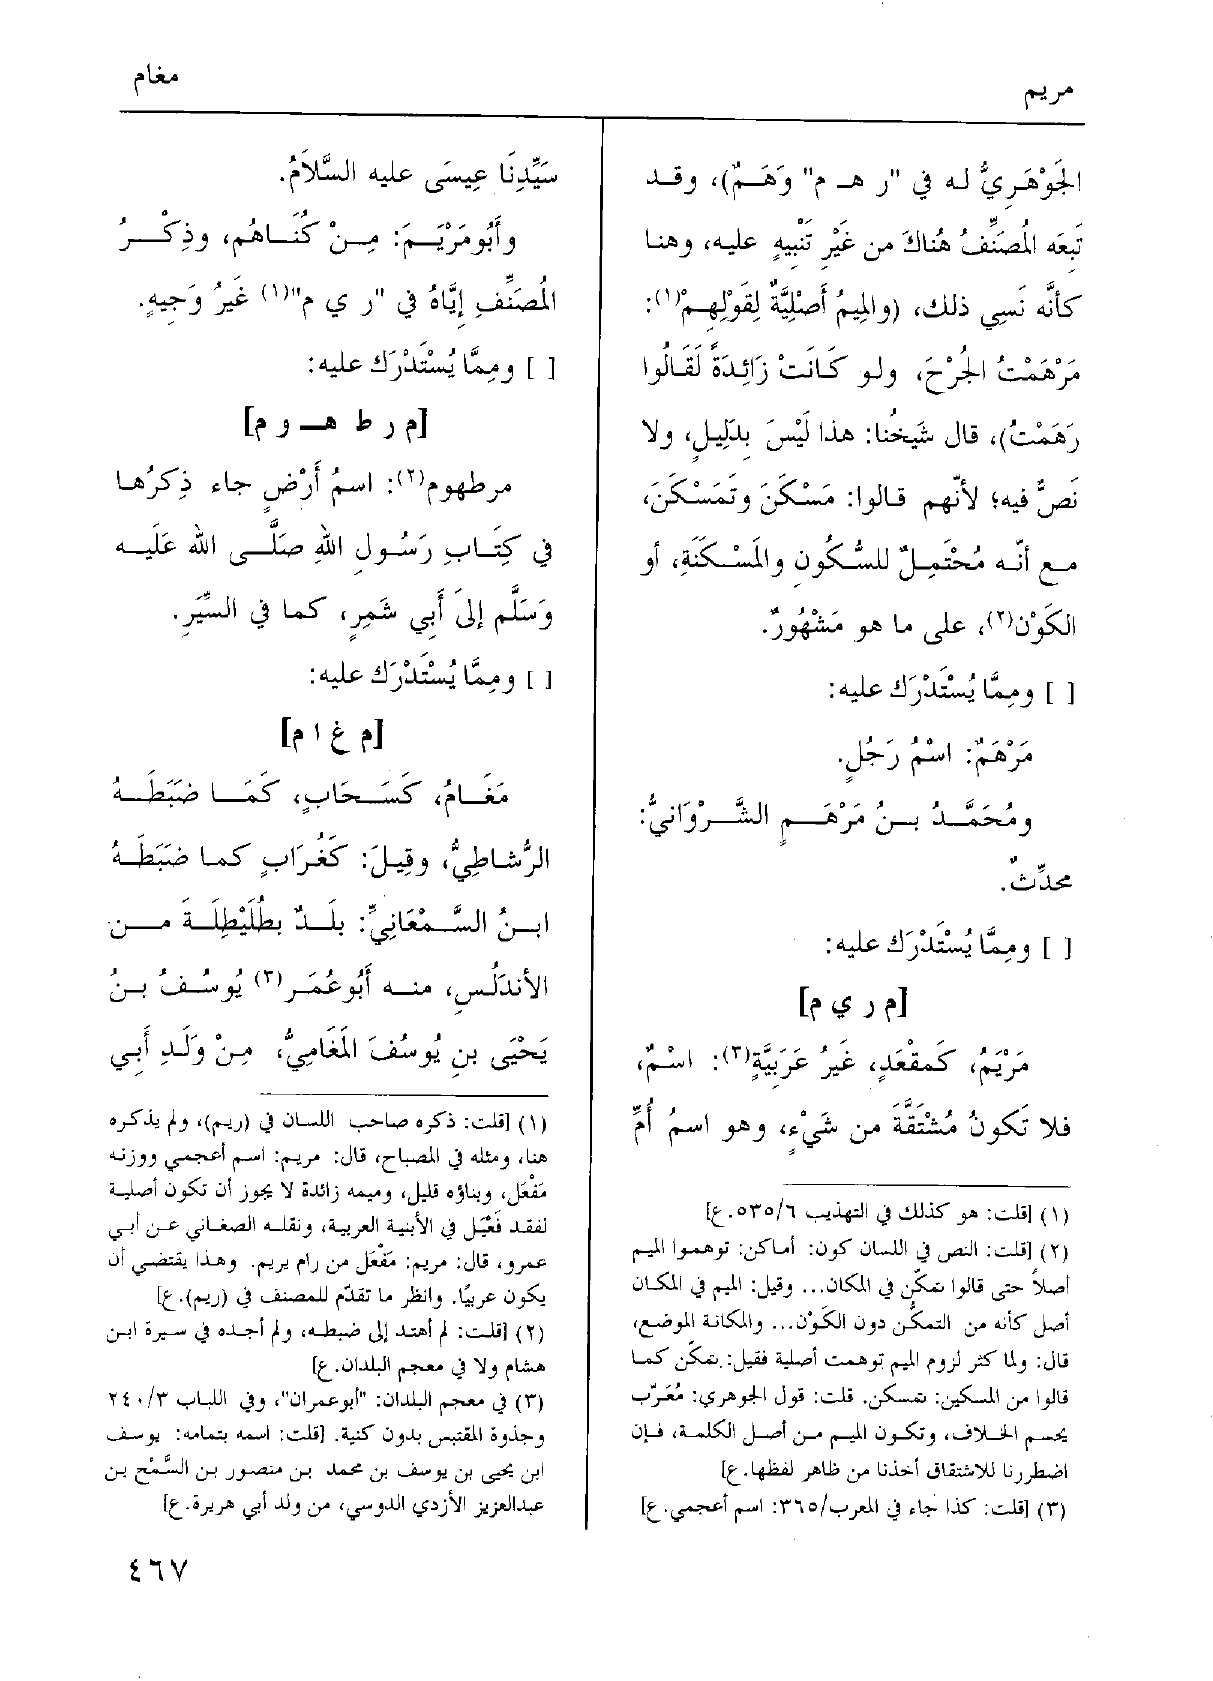 مريم
مغام
الجَوْهَرِيُّ له في "ر هـ م" وَهَـمٌ)، وقـد
تَبِعَه المُصَنِّفُ هُنَاكَ من غَيْرِ تَنْبِيهٍ عليه، وهنا
كأنَّه نَسِي ذلك، (والمِيمُ أَصْلِيَّةٌ لِقَوْلِهِمْ(١):
مَرْهَمْتُ الجُرْحَ، ولو كَانَتْ زَائِدَةً لَقَالُوا
رَهَمْتُ)، قال شَيخُنا: هذا لَيْسَ بدَلِيلٍ، ولا
نَصٌّ فيه؛ لأنَّهم قالوا: مَسْكَنَ وتَمَسْكَنَ،
مع أنَّه مُحْتَمِلٌ للسُّكُونِ والمَسْكَنَةِ، أو
الكَوْن(٢)، على ما هو مَشْهُورٌ.
[ ] ومِمَّا يُسْتَدْرَك عليه:
مَرْهَمٌ: اسْمُ رَجُلٍ.
ومُحَمَّدُ بنُ مَرْهَمٍ الشَّرْوَانيُّ:
محدِّثٌ.
[ ] ومِمَّا يُسْتَدْرَك عليه:
[م ر ي م]
مَرْيَمُ، كَمقْعَدٍ، غَيرُ عَرَبيَّةٍ(٣): اسْمٌ،
فلا تَكُونُ مُشْتَقَّةً من شَيْءٍ، وهو اسمُ أُمِّ
(١) [قلت: هو كذلك في التهذيب ٥٣٥/٦.ع]
(٢) [قلت: النص في اللسان كون: أماكن: توهموا الميم
أصلاً حتى قالوا تمكّن في المكان... وقيل: الميم في المكان
أصل كأنه من التمكُّن دون الكَوْن... والمكانة الموضع،
قال: ولما كثر لزوم الميم توهمت أصلية فقيل: تمكّن كما
قالوا من المسكين: تمسكن. قلت: قول الجوهري: مُعَرَّب
يحسم الخلاف، وتكون الميم من أصل الكلمة، فإن
اضطررنا للاشتقاق أخذنا من ظاهر لفظها.ع]
(٣) [قلت: كذا جاء في المعرب/٣٦٥: اسم أعجمي.ع]
سَيِّدِنَا عِيسَى عليه السَّلاَمُ.
وأَبُو مَرْيَمَ: مِنْ كُنَاهُم، وذِكْرُ
المُصَنِّفِ إيَّاهُ في "ر ي م"(١) غَيرُ وَجِيهٍ.
[ ] ومِمَّا يُسْتَدْرَك عليه:
[م ر ط هـ و م]
مرطهوم(٢): اسمُ أَرْضٍ جاء ذِكرُها
في كِتَابِ رَسُولِ اللهِ صلَّى الله عَلَيه
وَسَلَّم إلىَ أَبِي شَمِرٍ، كما في السِّيَرِ.
[ ] ومِمَّا يُسْتَدْرَك عليه:
[م غ ا م]
مَغَامُ، كَسَحَابٍ، كَمَا ضَبَطَهُ
الرُّشاطِيُّ، وقِيلَ: كغُرَابٍ كما ضَبَطَهُ
ابنُ السَّمْعَانِيِّ: بلَدٌ بطُلَيْطِلَةَ من
الأندَلُسِ، منه أَبُو عُمَر(٣) يُوسُفُ بنُ
يَحْيَى بنِ يُوسُفَ المَغَامِيُّ، مِنْ وَلَدِ أَبي
(١) [قلت: ذكره صاحب اللسان في (ريم)، ولم يذكره
هنا، ومثله في المصباح، قال: مريم: اسم أعجمي ووزنه
مَفْعَل، وبناؤه قليل، وميمه زائدة لا يجوز أن تكون أصلية
لفقد فَعْيَل في الأبنية العربية، ونقله الصغاني عن أبي
عمرو، قال: مريم: مَفْعَل من رام يريم. وهذا يقتضي أن
يكون عربيًا. وانظر ما تقدّم للمصنف في (ريم).ع]
(٢) [قلت: لم أهتد إلى ضبطه، ولم أجده في سيرة ابن
هشام ولا في معجم البلدان.ع]
(٣) في معجم البلدان: "أبو عمران"، وفي اللباب ٢٤٠/٣
وجذوة المقتبس بدون كنية. [قلت: اسمه بتمامه: يوسف
ابن يحيى بن يوسف بن محمد بن منصور بن السَّمْح بن
عبدالعزيز الأزدي الدوسي، من ولد أبي هريرة.ع]
٤٦٧